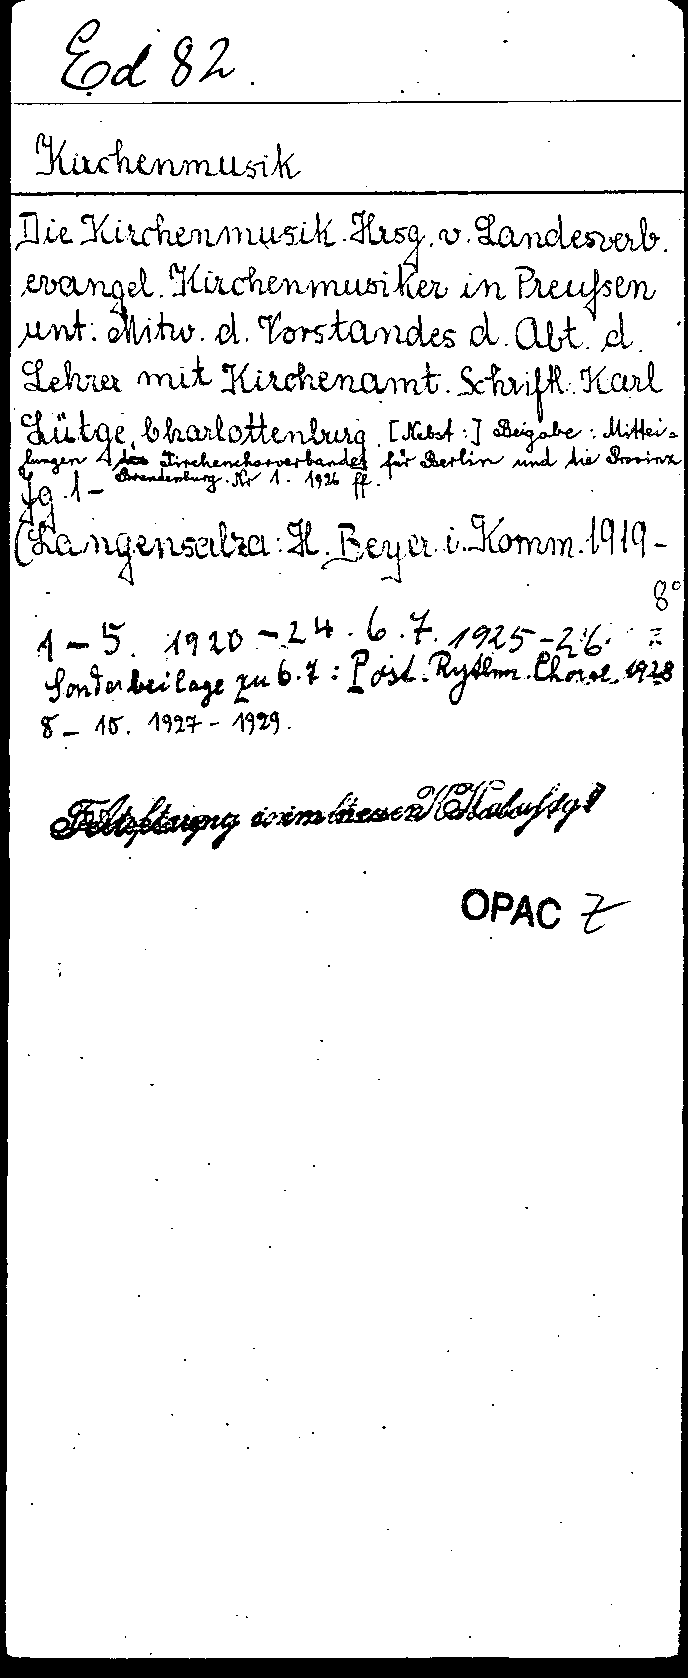 Ed 82.
Kirchenmusik
Die Kirchenmusik. Hrsg. v. Landesverb.
evangel. Kirchenmusiker in Preußen
unt. Mitw. d. Vorstandes d. Abt. d.
Lehrer mit Kirchenamt. Schriftl. Karl
Lütge, Charlottenburg. [Nebst:] Beigabe: Mittei-
lungen des Kirchenchorverbandes für Berlin und die Provinz
Brandenburg. Nr 1. 1926 ff.
Jg. 1-
(Langensalza: H. Beyer i. Komm. 1919-
8°
1-5. 1920-24. 6.7. 1925-26.
Sonderbeilage zu 6.7: Post. Rythm. Choral. 1928
8-10. 1927-1929.
OPAC Z